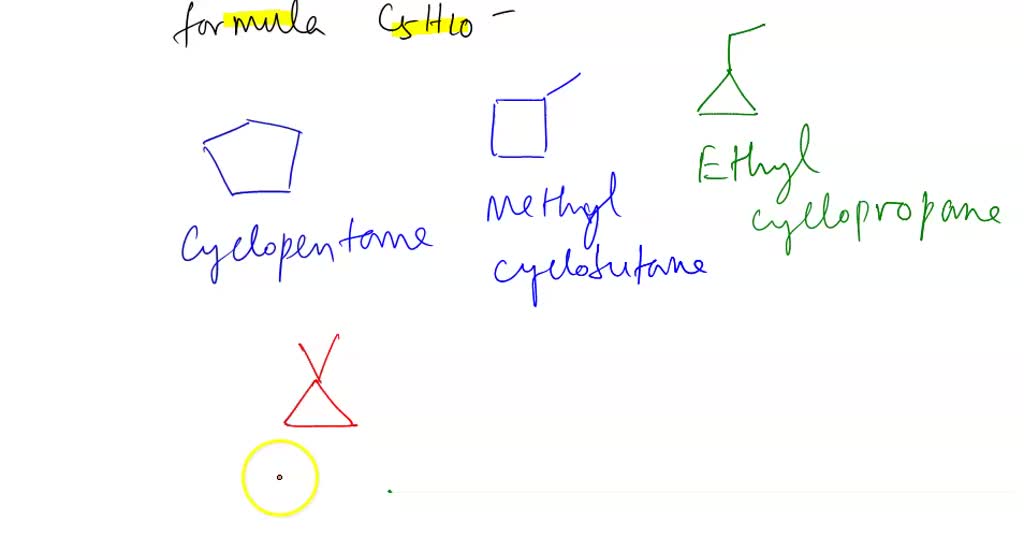 formula C5H10 -
Cyclopentane
Methyl
cyclobutane
Ethyl
cyclopropane